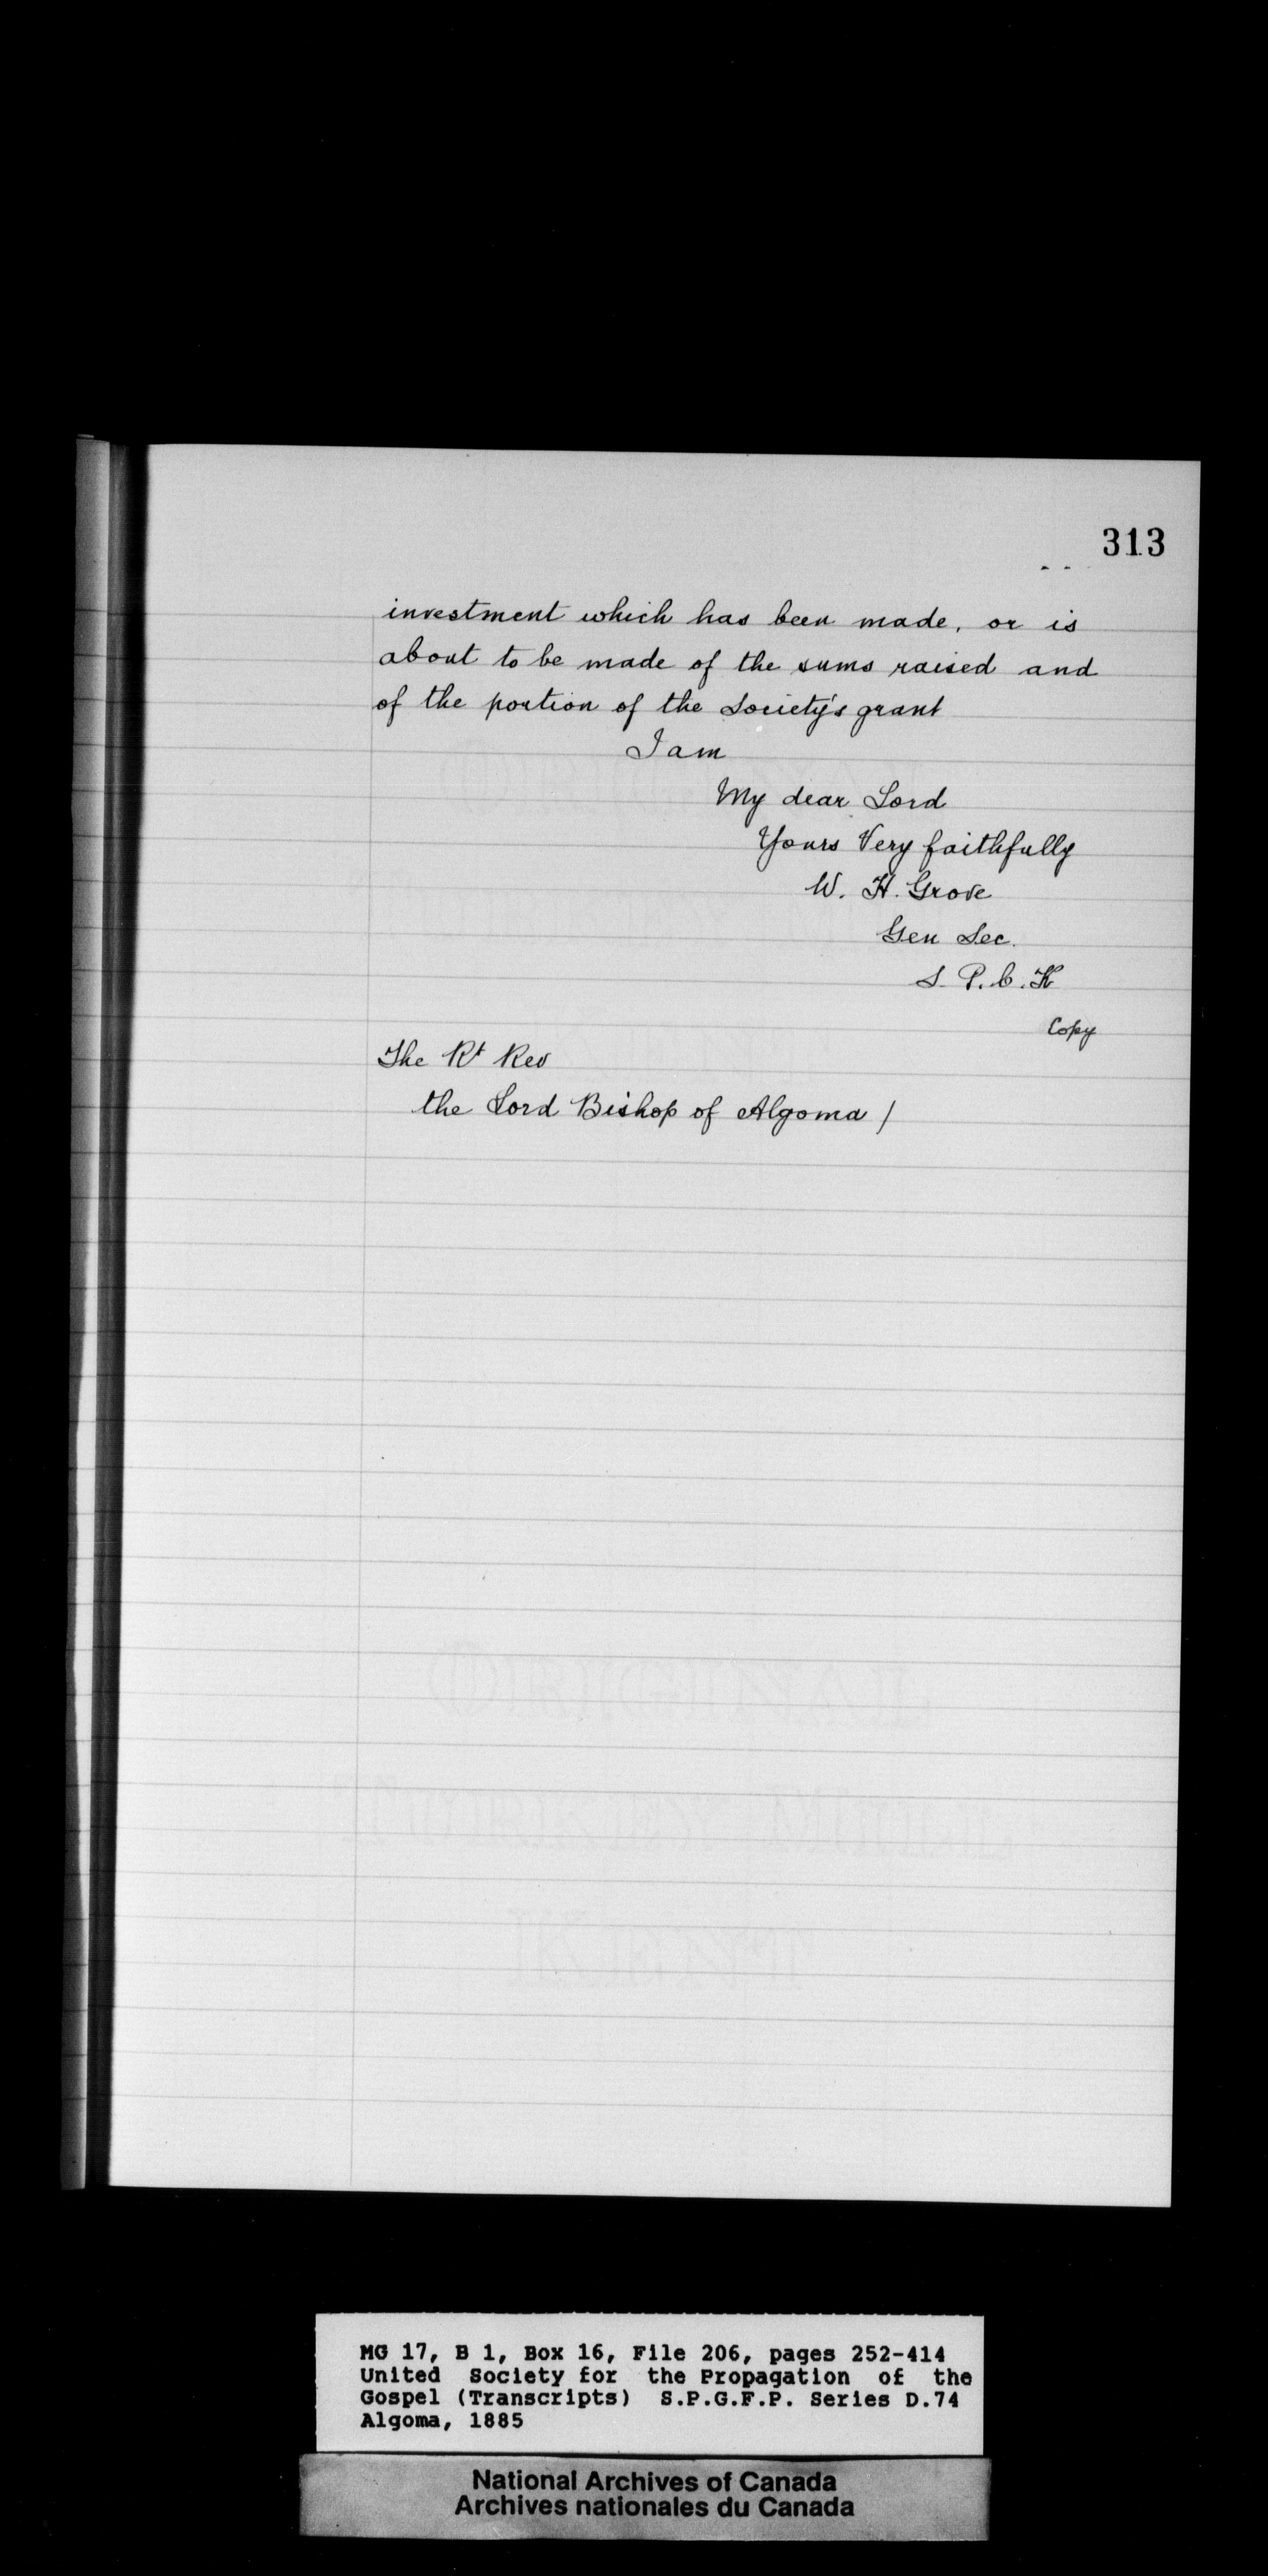 313
investment which has been made, or is
about to be made of the sums raised and
of the portion of the Society's grant
I am
My dear Lord
Yours Very faithfully
W. H. Grove
Gen Sec.
S. P. C. K
Copy
The Rt Rev
the Lord Bishop of Algoma /
MG 17, B 1, Box 16, File 206, pages 252-414
United Society for the Propagation of the
Gospel (Transcripts) S.P.G.F.P. Series D.74
Algoma, 1885
National Archives of Canada
Archives nationales du Canada